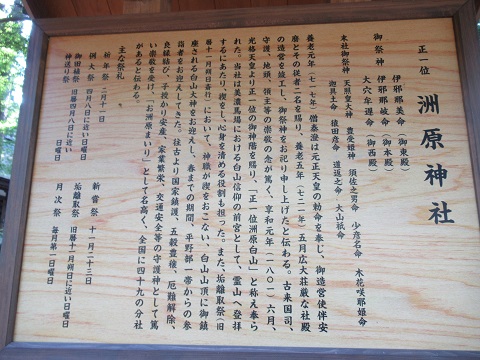 正一位 洲原神社
御祭神 伊邪那美命（御東殿）
伊邪那岐命（御本殿）
大穴牟遅命（御西殿）
末社御祭神 天照皇大神 豊受姫神 須佐之男命 少彦名命 木花咲耶姫命
迦具土命 猿田彦命 道返之命 大山祇命
養老元年（七一七年）僧泰澄は元正天皇の勅命を奉じ、御造営使伴安
麿とその従者二名を賜り、養老五年（七二一年）五月広大荘厳な社殿
の造営を竣工し、御祭神をお祀り申し上げたと伝わる。古来国司、
守護、地頭、領主等の崇敬の念が篤く、享和元年（一八〇一）六月、
光格天皇より正一位の御神階を賜り、「正一位洲原白山」と称え奉ら
れた。当社は美濃馬場における白山信仰の前宮として、霊山へ登拝
するにあたり、禊をし、心身を清める役割も担った。また、垢離取祭（旧
暦十一月朔日斎行）において、神職が禊をおこない、白山山頂に御鎮
座される白山大神をお迎えし、春までの期間、平野部一帯からの参
詣者をお迎えしてきた。往古より国家鎮護、五穀豊穣、厄難解除、
良縁結び、子授け安産、家業繁栄、交通安全等の守護神として篤
い崇敬を受け、「お洲原まいり」として名高く、全国に四十九の分社
があると伝わる。
主な祭礼
祈年祭 二月十一日
例大祭 四月八日に近い日曜日
御田植祭 旧暦四月八日に近い日曜日
神送り祭
新嘗祭 十一月二十三日
垢離取祭 旧暦十一月朔日に近い日曜日
月次祭 毎月第一日曜日